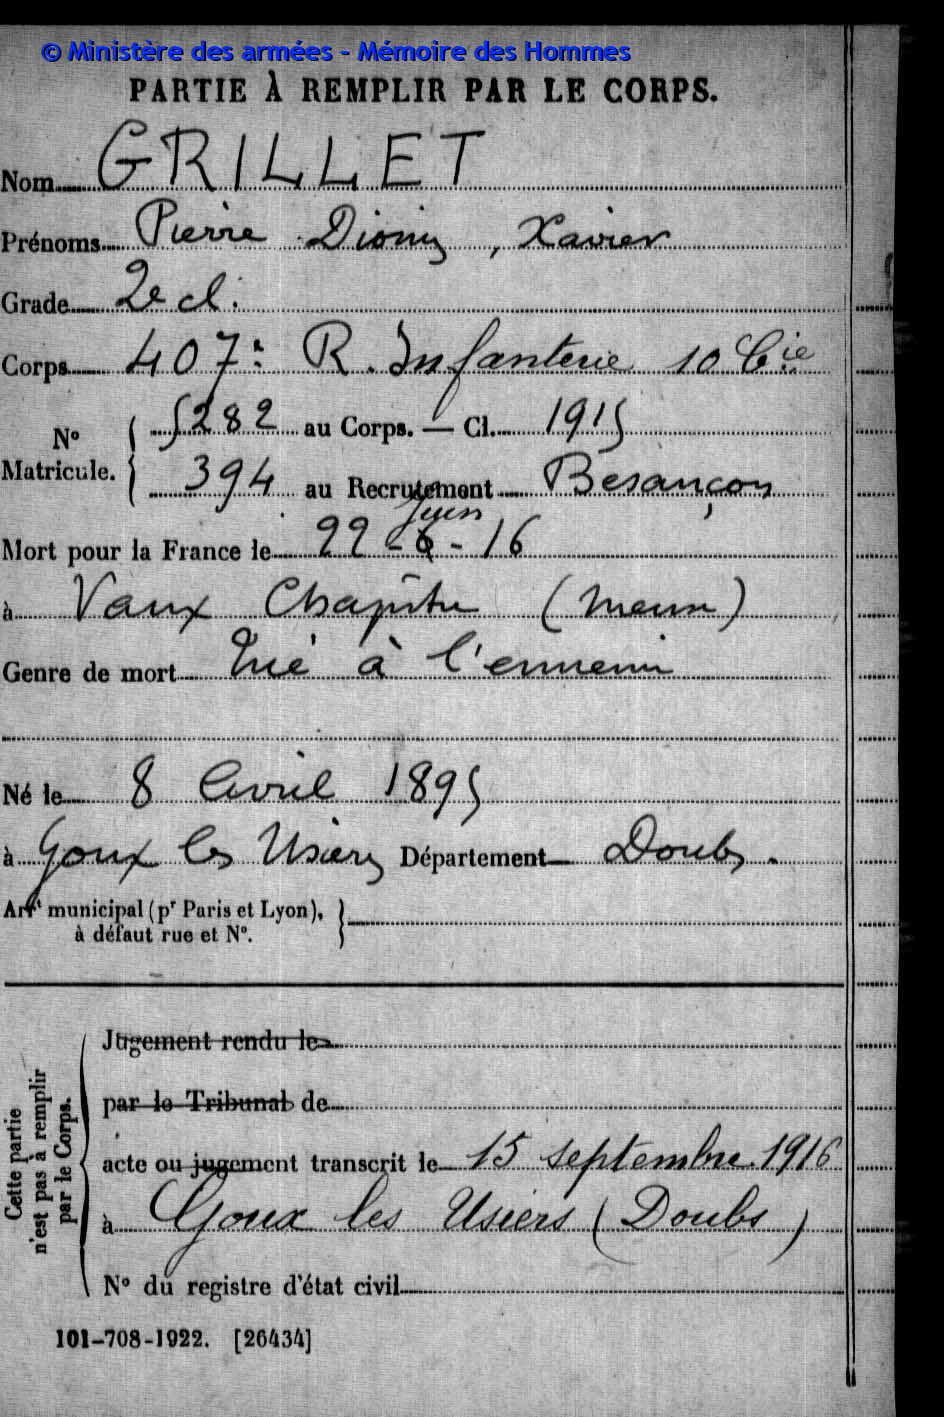 © Ministère des armées - Mémoire des Hommes
PARTIE À REMPLIR PAR LE CORPS.
Nom GRILLET
Prénoms Pierre Dionis, Xavier
Grade 2e cl.
Corps 407e R. Infanterie 10 Cie
N° Matricule. { 5282 au Corps. — Cl. 1915
394 au Recrutement Besançon
Juin
Mort pour la France le 22 - 6 - 16
à Vaux Chapitre (Meuse)
Genre de mort Tué à l'ennemi
Né le 8 Avril 1895
à Goux les Usiers Département Doubs.
Arrt municipal (pr Paris et Lyon),
à défaut rue et N°.
Cette partie
n'est pas à remplir
par le Corps.
Jugement rendu le
par le Tribunal de
acte ou jugement transcrit le 15 septembre 1916
à Goux les Usiers (Doubs)
N° du registre d'état civil
101-708-1922. [26434]